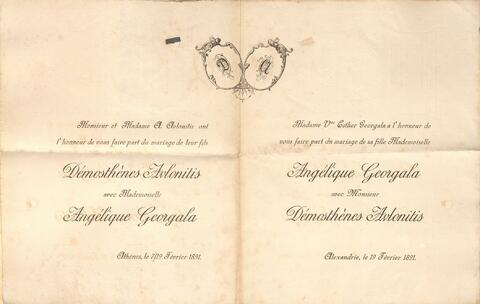 Monsieur et Madame A. Avlonitis ont
l'honneur de vous faire part du mariage de leur fils
Démosthènes Avlonitis
avec Mademoiselle
Angélique Georgala
Athènes, le 7/19 Février 1891.
Madame Vve Esther Georgala a l'honneur de
vous faire part du mariage de sa fille Mademoiselle
Angélique Georgala
avec Monsieur
Démosthènes Avlonitis
Alexandrie, le 19 Février 1891.